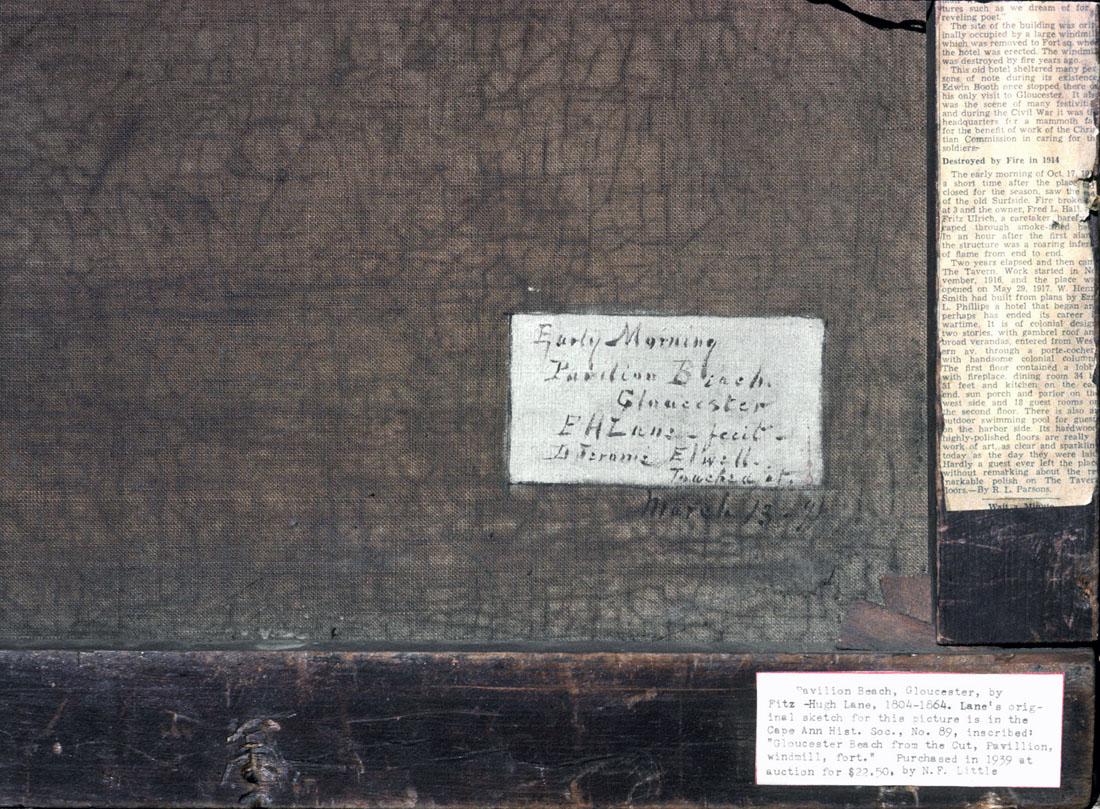 Early Morning
Pavilion Beach.
Gloucester
F H Lane - fecit -
D Jerome Elwell -
Touched it.
March 13 -
tures such as we dream of for
reveling poet."
The site of the building was orig-
inally occupied by a large windmill
which was removed to Fort sq. when
the hotel was erected. The windmill
was destroyed by fire years ago.
This old hotel sheltered many per-
sons of note during its existence
Edwin Booth once stopped there on
his only visit to Gloucester. It also
was the scene of many festivities
and during the Civil War it was the
headquarters for a mammoth fair
for the benefit of work of the Chris-
tian Commission in caring for the
soldiers.
Destroyed by Fire in 1914
The early morning of Oct. 17,
a short time after the place
closed for the season, saw the
of the old Surfside. Fire broke
at 3 and the owner, Fred L. Hall,
Fritz Ulrich, a caretaker
caped through
In an hour after the first alarm
the structure was a roaring inferno
of flame from end to end.
Two years elapsed and then came
The Tavern. Work started in No-
vember, 1916, and the place was
opened on May 29, 1917. W. Henry
Smith had built from plans by
L. Phillips a hotel that began and
perhaps has ended its career in
wartime. It is of colonial design
two stories, with gambrel roof and
broad verandas, entered from West-
ern av. through a porte-cochere
with handsome colonial columns
The first floor contained a lobby
with fireplace, dining room 34 by
51 feet and kitchen on the east
end, sun porch and parlor on the
west side and 18 guest rooms on
the second floor. There is also an
outdoor swimming pool for guests
on the harbor side. Its hardwood
highly-polished floors are really a
work of art, as clear and sparkling
today as the day they were laid.
Hardly a guest ever left the place
without remarking about the re-
markable polish on The Tavern
floors.—By R. L. Parsons.
Pavilion Beach, Gloucester, by
Fitz -Hugh Lane, 1804-1864. Lane's orig-
inal sketch for this picture is in the
Cape Ann Hist. Soc., No. 89, inscribed:
"Gloucester Beach from the Cut, Pavillion,
windmill, fort."   Purchased in 1939 at
auction for $22.50, by N.F. Little